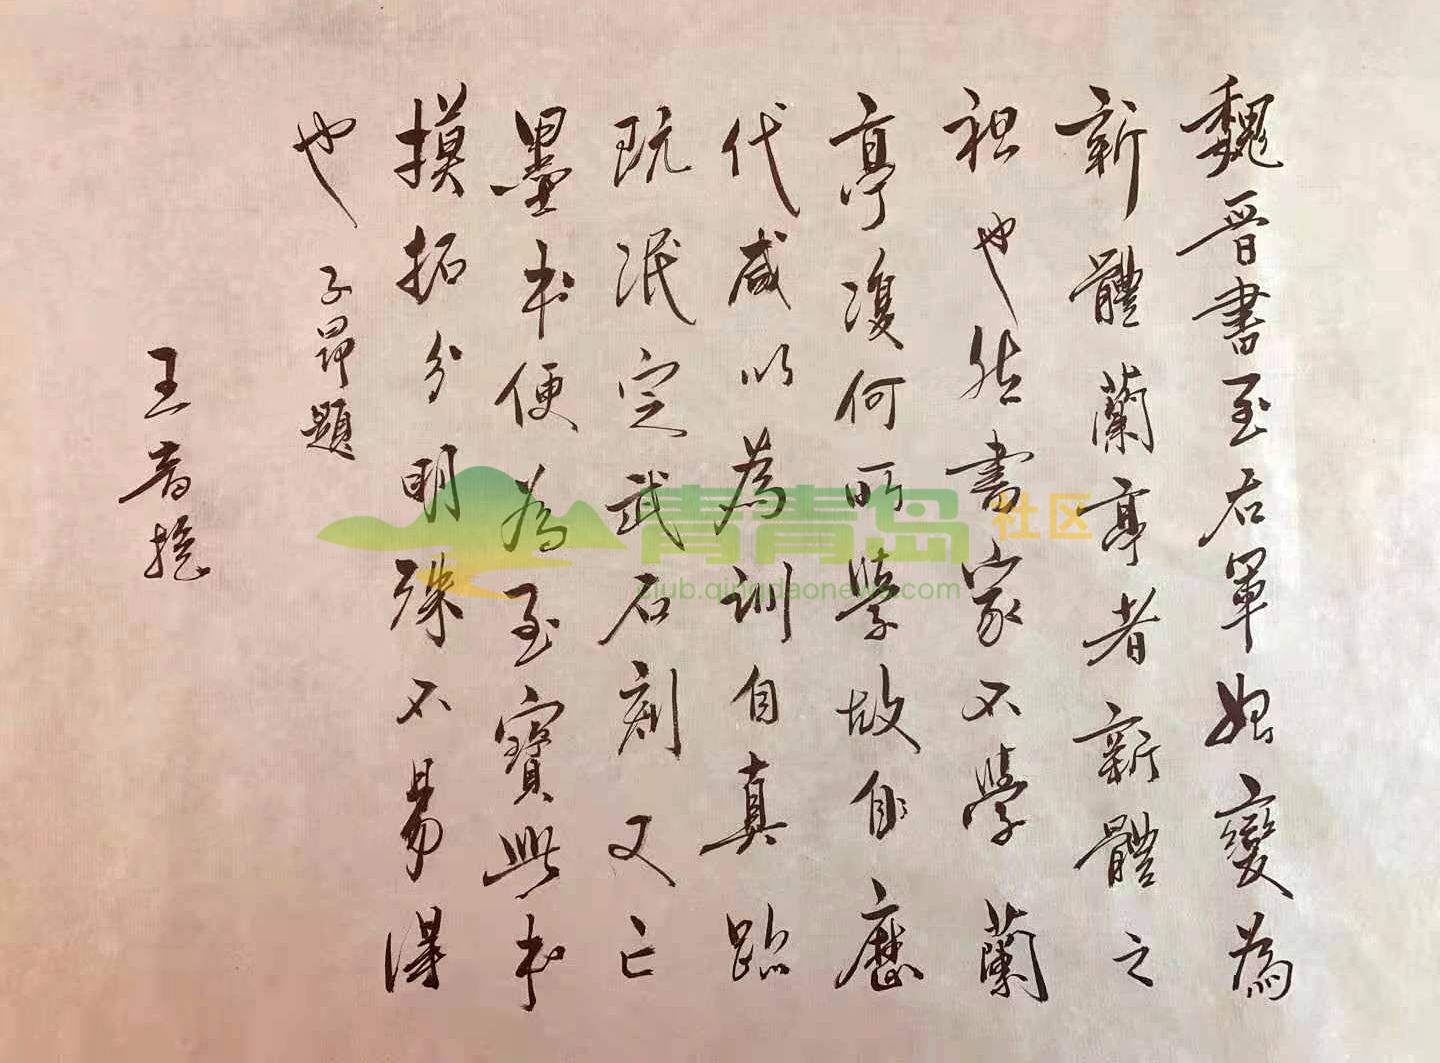 魏晉書至右軍始變為
新體蘭亭者新體之
祖也然書家不學蘭
亭復何所學故自歷
代咸以為訓自真跡
既泯定武石刻又亡
墨本便為至寶此本
摸拓分明殊不易得
也 子昂題
王
青青岛社区
club.qingdaonews.com